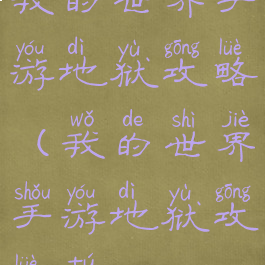 我的世界手
yóu dì yù gōng lüè
游地狱攻略
wǒ de shì jiè
（我的世界
shǒu yóu dì yù gōng
手游地狱攻
lüè